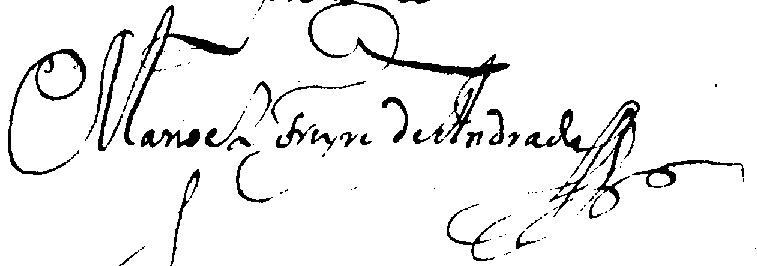 Manoel Freyre de Andrade